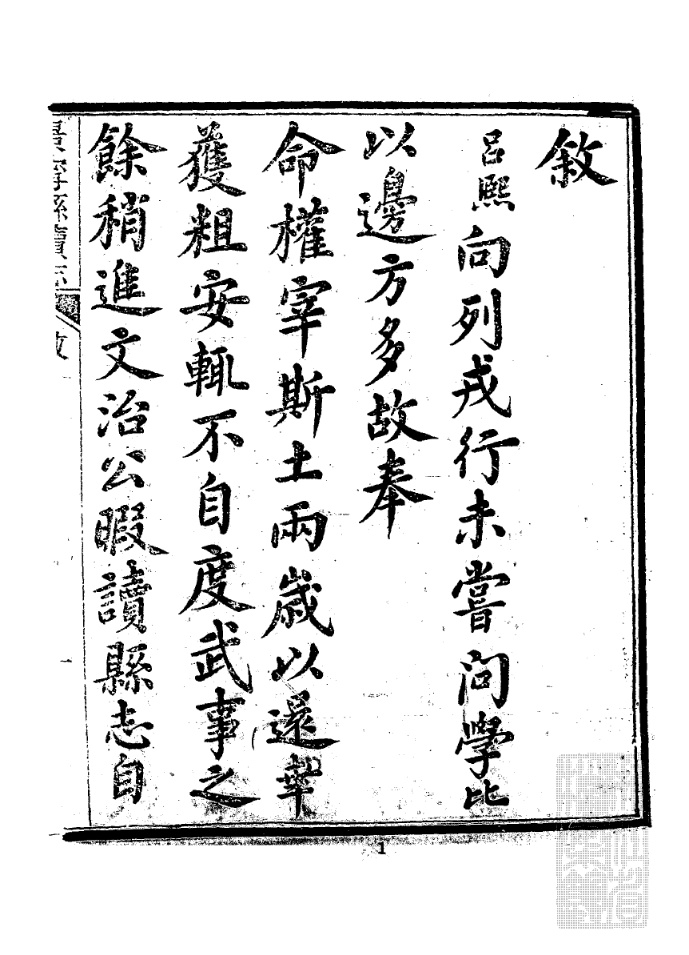 敘
呂熙向列戎行未嘗问學比
以邊方多故奉
命權宰斯土兩歲以還幸
獲粗安輒不自度武事之
餘稍進文治公暇讀縣志自
縣續志
1